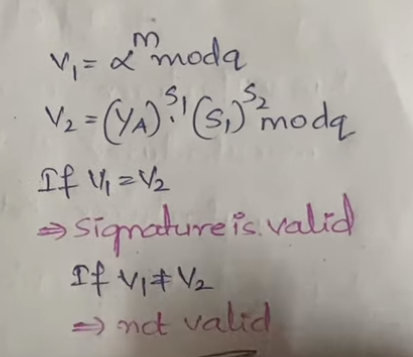 V₁ = α^m mod q
V₂ = (YA)^S₁ · (S₁)^S₂ mod q
If V₁ = V₂
⇒ Signature is valid
If V₁ ≠ V₂
⇒ not valid